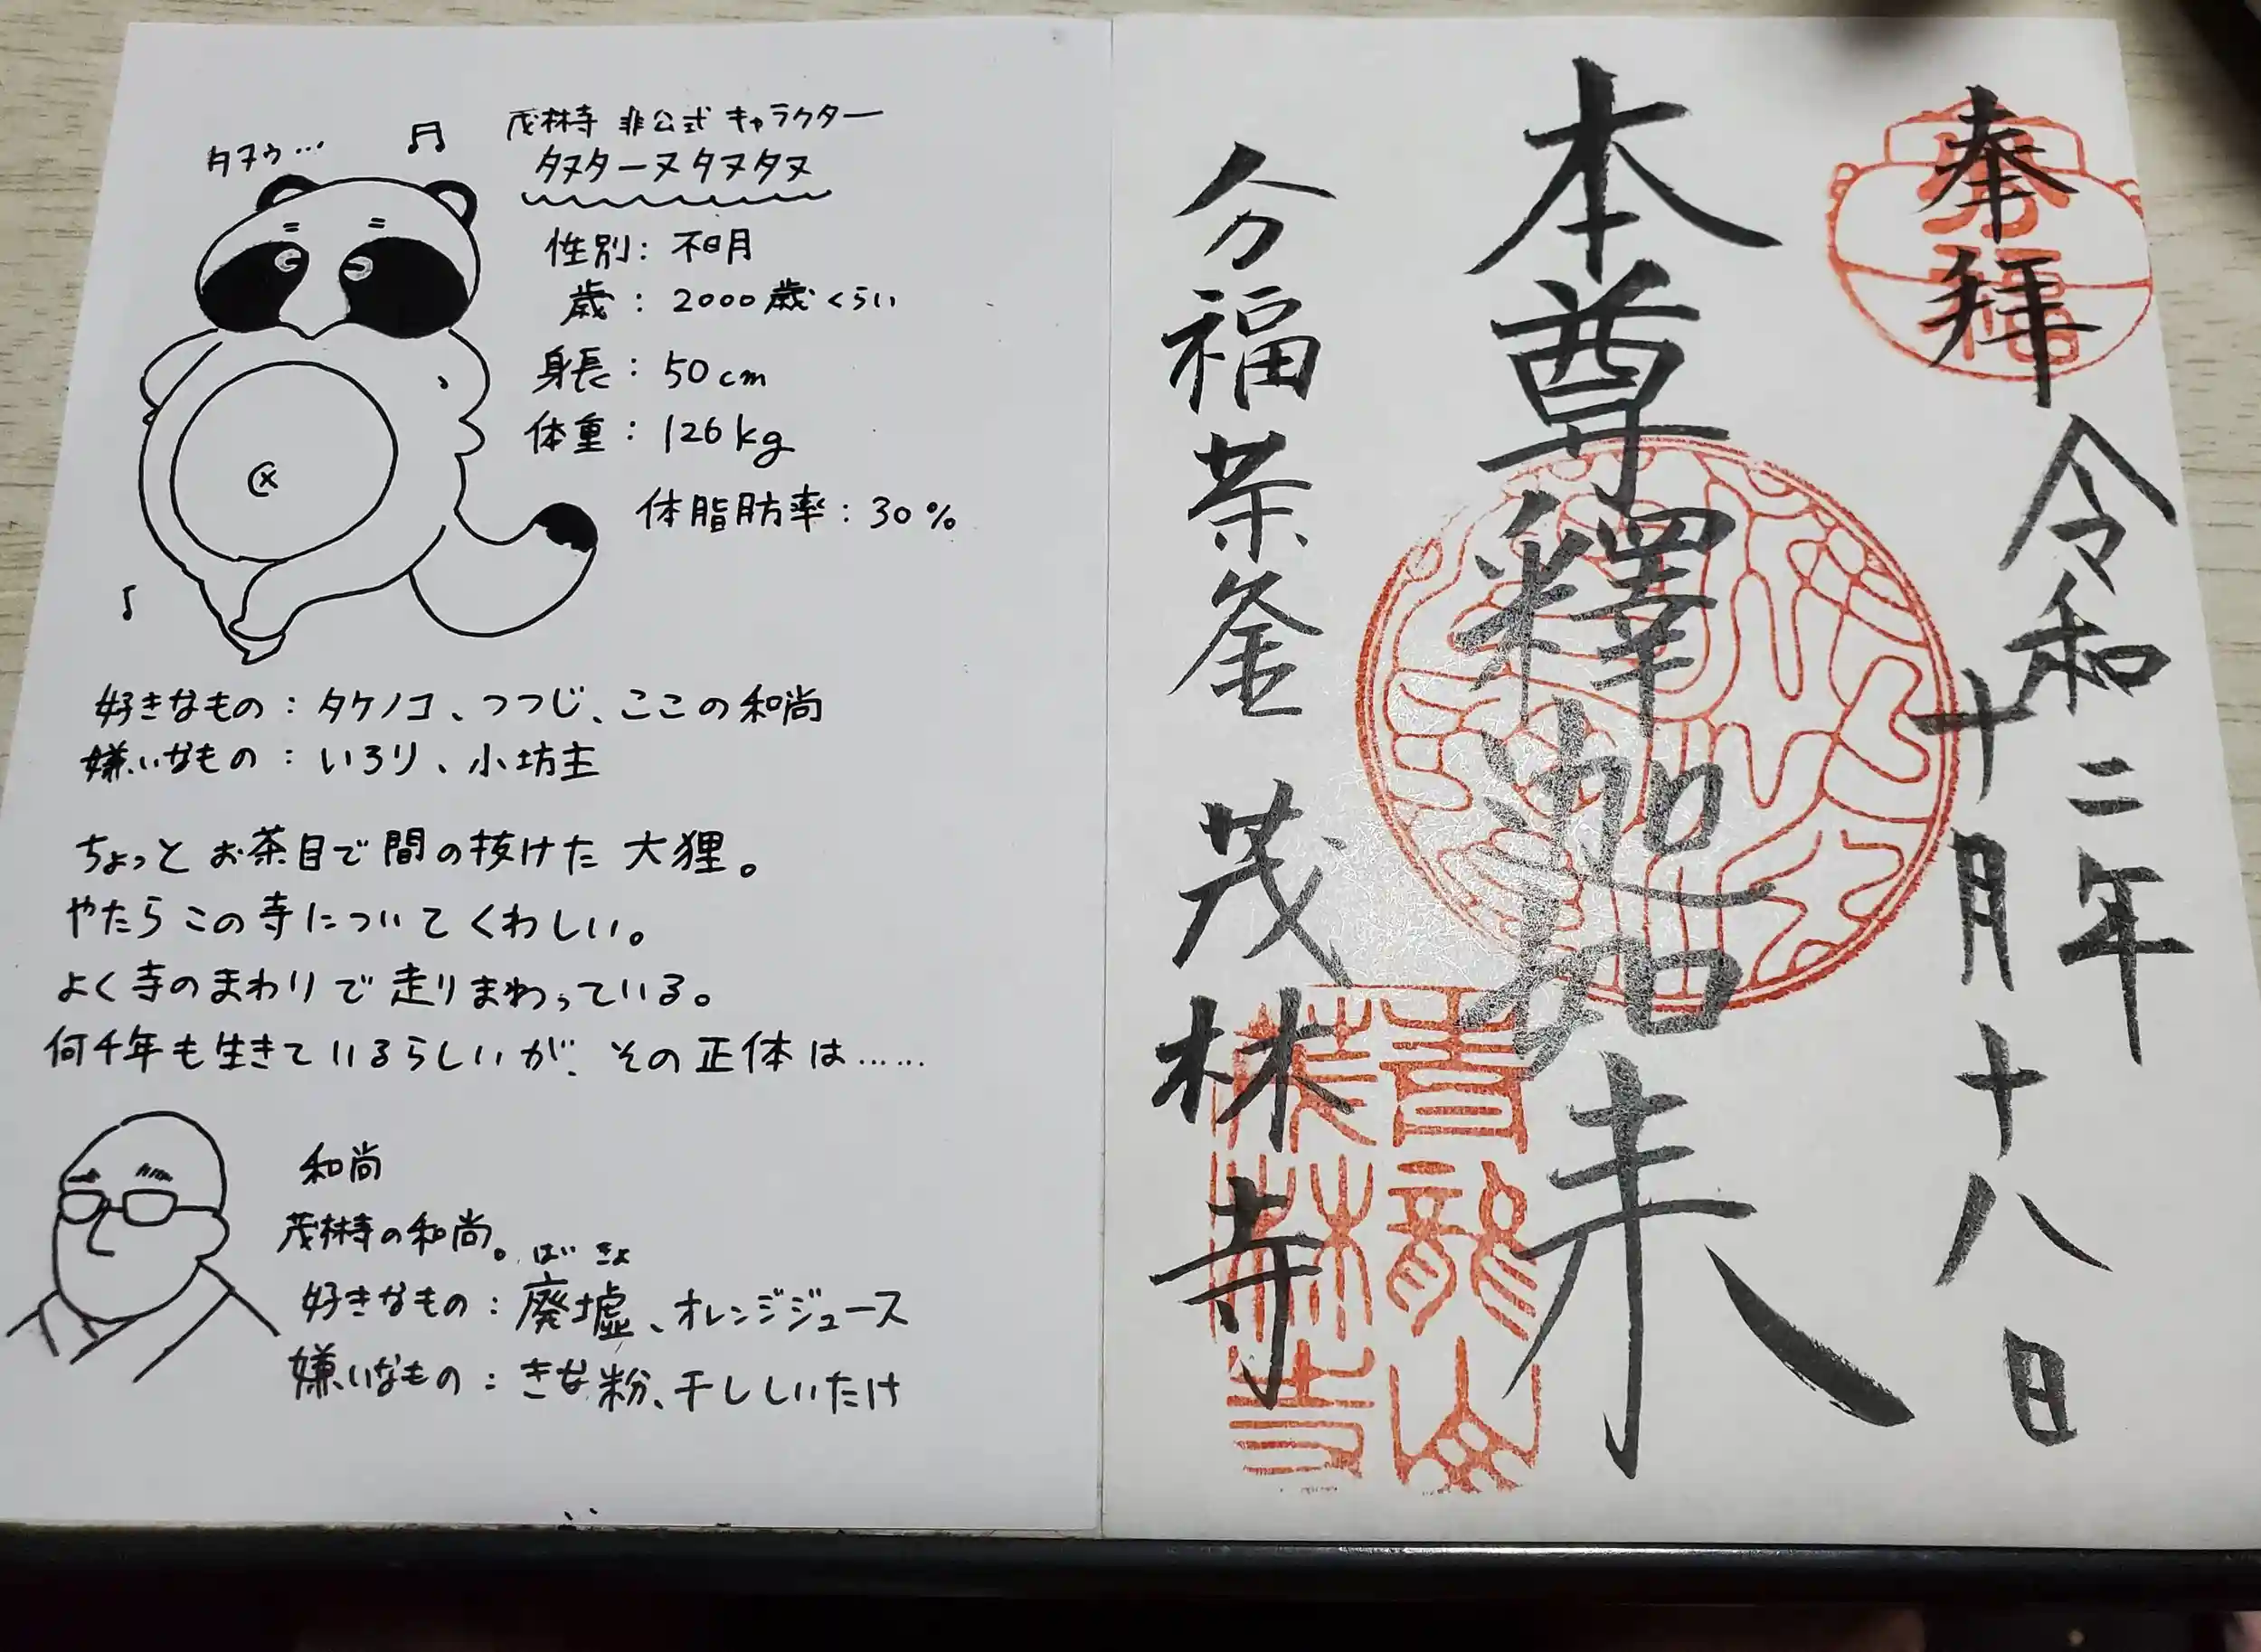 タヌゥ…
茂林寺 非公式 キャラクター
タヌターヌタヌタヌ
性別: 不明
歳: 2000歳くらい
身長: 50cm
体重: 126kg
体脂肪率: 30%
好きなもの: タケノコ、つつじ、ここの和尚
嫌いなもの: いろり、小坊主
ちょっとお茶目で間の抜けた大狸。
やたらこの寺についてくわしい。
よく寺のまわりで走りまわっている。
何千年も生きているらしいが、その正体は……
和尚
茂林寺の和尚。
はい きょ
好きなもの: 廃墟、オレンジジュース
嫌いなもの: きな粉、干ししいたけ
奉拝
令和二年
十月十八日
本尊釋迦如来
分福茶釜 茂林寺
分福
青龍山
茂林寺